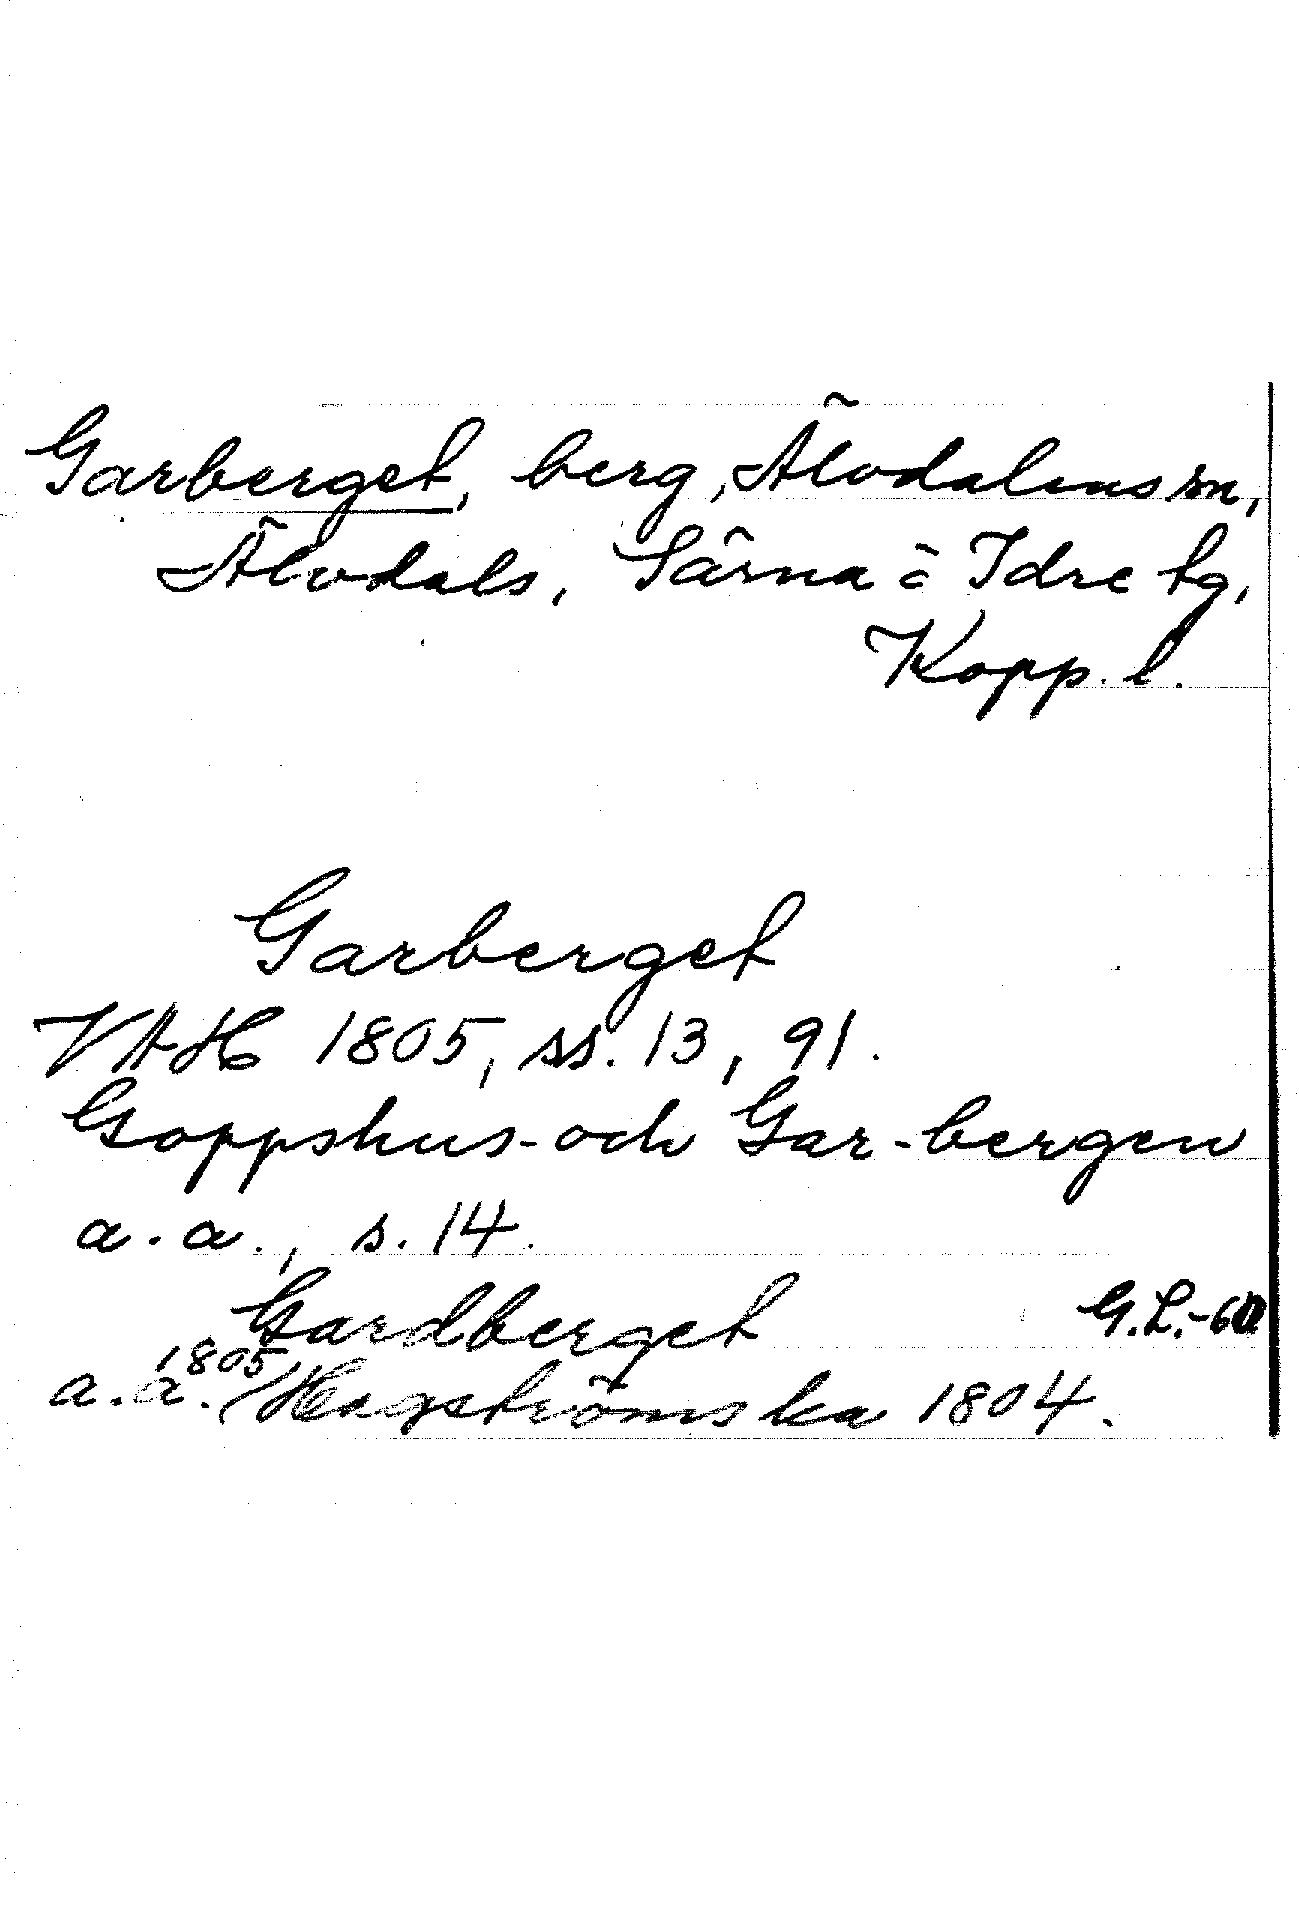 Garberget, berg, Älvdalens sn,
Älvdals, Särna o Idre tg,
Kopp. l.
Garberget
VAH 1805, ss. 13, 91.
Goppshus- och Gar-bergen
a.a., s. 14.
Gardberget
G.L.-60
a.a. 1805, Hagströmska 1804.